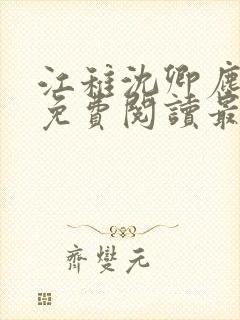 江稚沈卿鹿
免費閱讀最
齊燮元